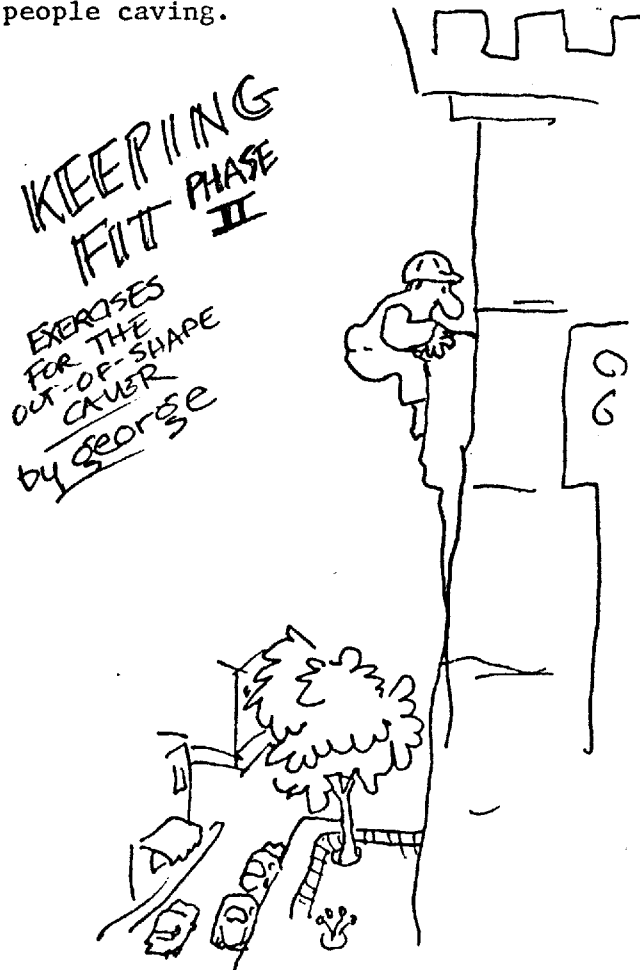 people caving.
KEEPING
FIT PHASE
II
EXERCISES
FOR THE
OUT-OF-SHAPE
CAVER
by george